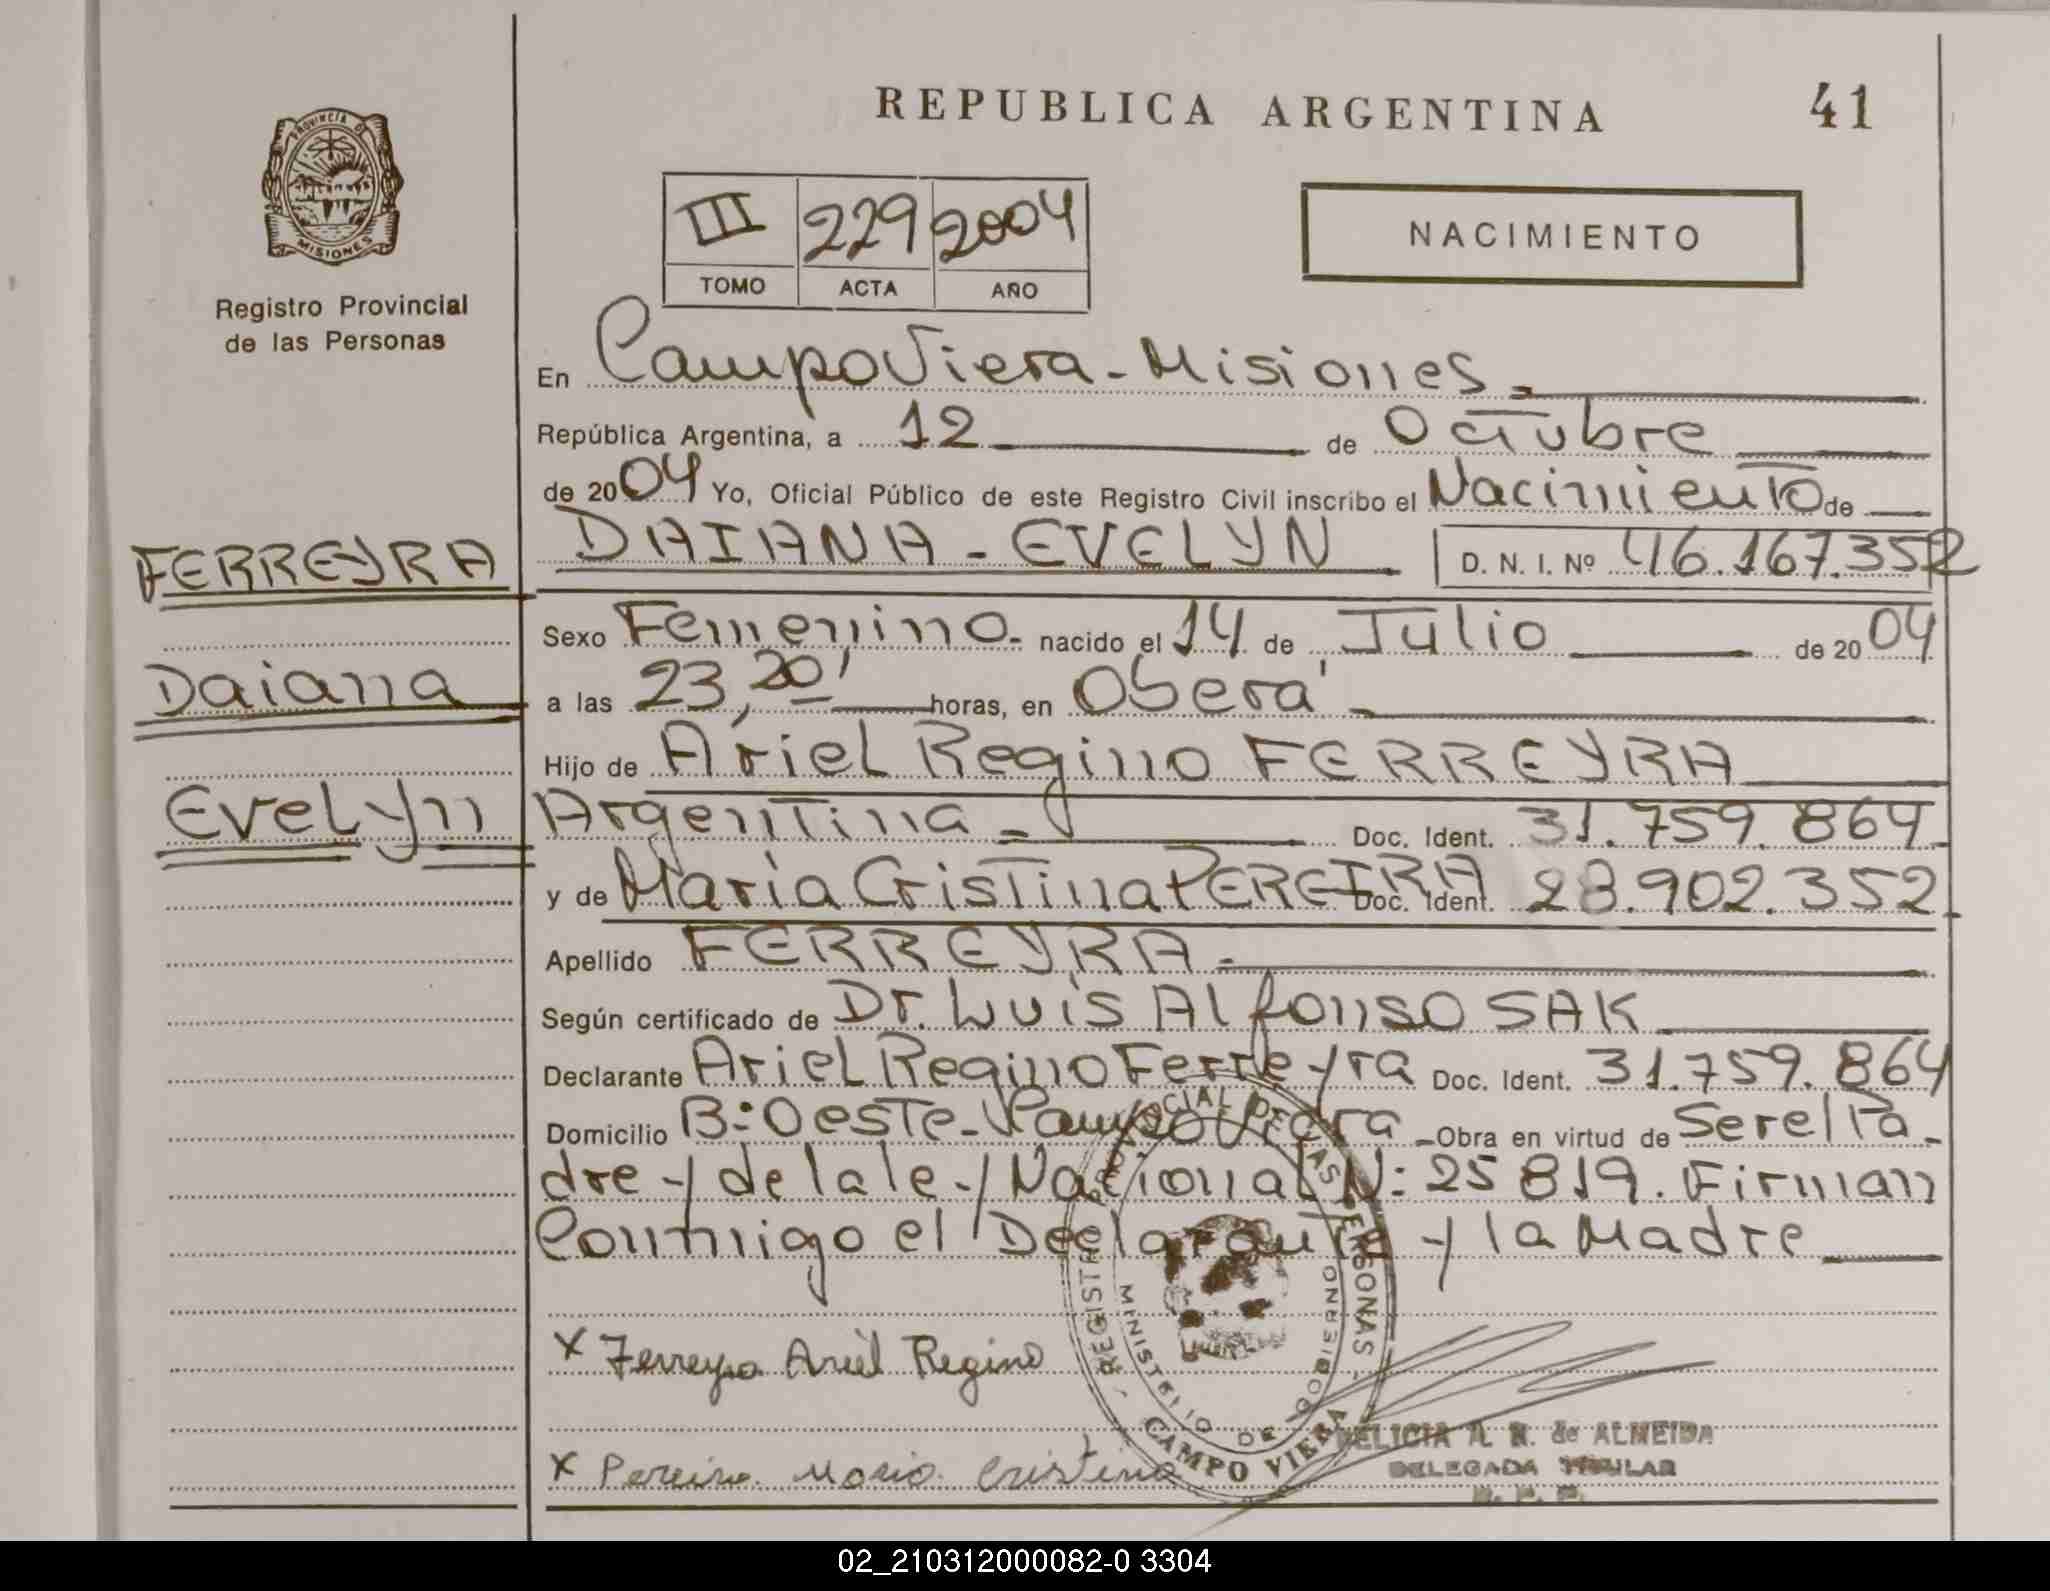 REPUBLICA ARGENTINA
41
PROVINCIA DE
MISIONES
Registro Provincial
de las Personas
III 229 2004
TOMO ACTA AÑO
NACIMIENTO
En Campo Viera - Misiones.
República Argentina, a 12 de Octubre
de 2004 Yo, Oficial Público de este Registro Civil inscribo el Nacimiento de
DAIANA - EVELYN
D. N. I. Nº 46.167.352
FERREYRA
Daiana
Evelyn
Sexo Femenino. nacido el 14 de Julio de 2004
a las 23,20' horas, en Oberá
Hijo de Ariel Regino FERREYRA
Argentina - Doc. Ident. 31.759.864
y de María Cristina PEREIRA Doc. Ident. 28.902.352
Apellido FERREYRA.
Según certificado de Dr. Luis Alfonso SAK
Declarante Ariel Regino Ferreyra Doc. Ident. 31.759.864
Domicilio B:Oeste-Campo Viera - Obra en virtud de Ser el Pa-
dre y de la ley Nacional N: 25819. Firman
Conmigo el Declarante y la Madre
x Ferreyra Ariel Regino
x Pereira Maria Cristina
REGISTRO PROVINCIAL DE LAS PERSONAS
MINISTERIO DE GOBIERNO
CAMPO VIERA
DELICIA A. N. de ALMEIDA
DELEGADA TITULAR
R. P. P.
02_210312000082-0 3304